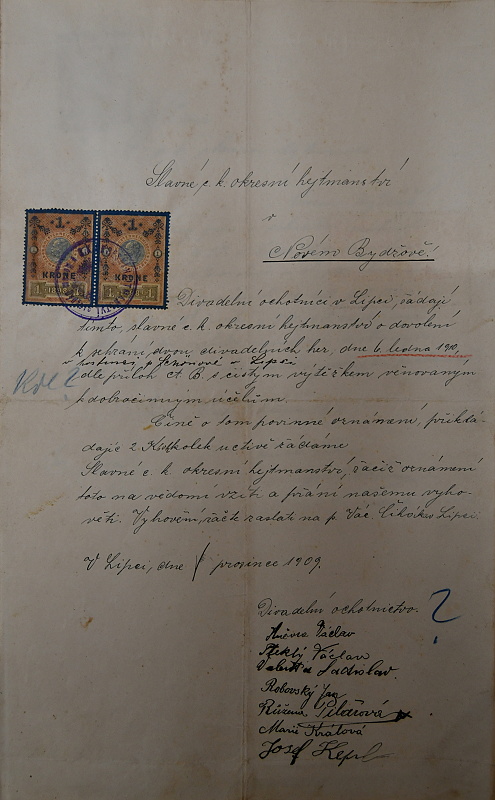 Slavné c. k. okresní hejtmanství
v
Novém Bydžově!
1 1
KRONE KRONE
1 1898 1 1 1
Divadelní ochotníci v Lipci, žádají
tímto, slavné c. k. okresní hejtmanství o dovolení
k sehrání dvou divadelních her, dne 6. ledna 1910,
v hostinci p. v Lipci
Kde?
dle příloh A. B. s čistým výtěžkem věnovaným
k dobročinným účelům.
Číně o tom povinné oznámení, přiklá-
dajíc 2 K uctivě žádáme
Slavné c. k. okresní hejtmanství, račiž oznámení
toto na vědomí vzíti a přání našemu vyho-
věti. Vyhovění, račte zaslati na p. Vác. v Lipci.
V Lipci, dne prosince 1909.
Divadelní ochotnictvo:
?
Václav
Václav
Ladislav
Robovský Jan
Růžena Pilařová
Marie Králová
Josef Kepl